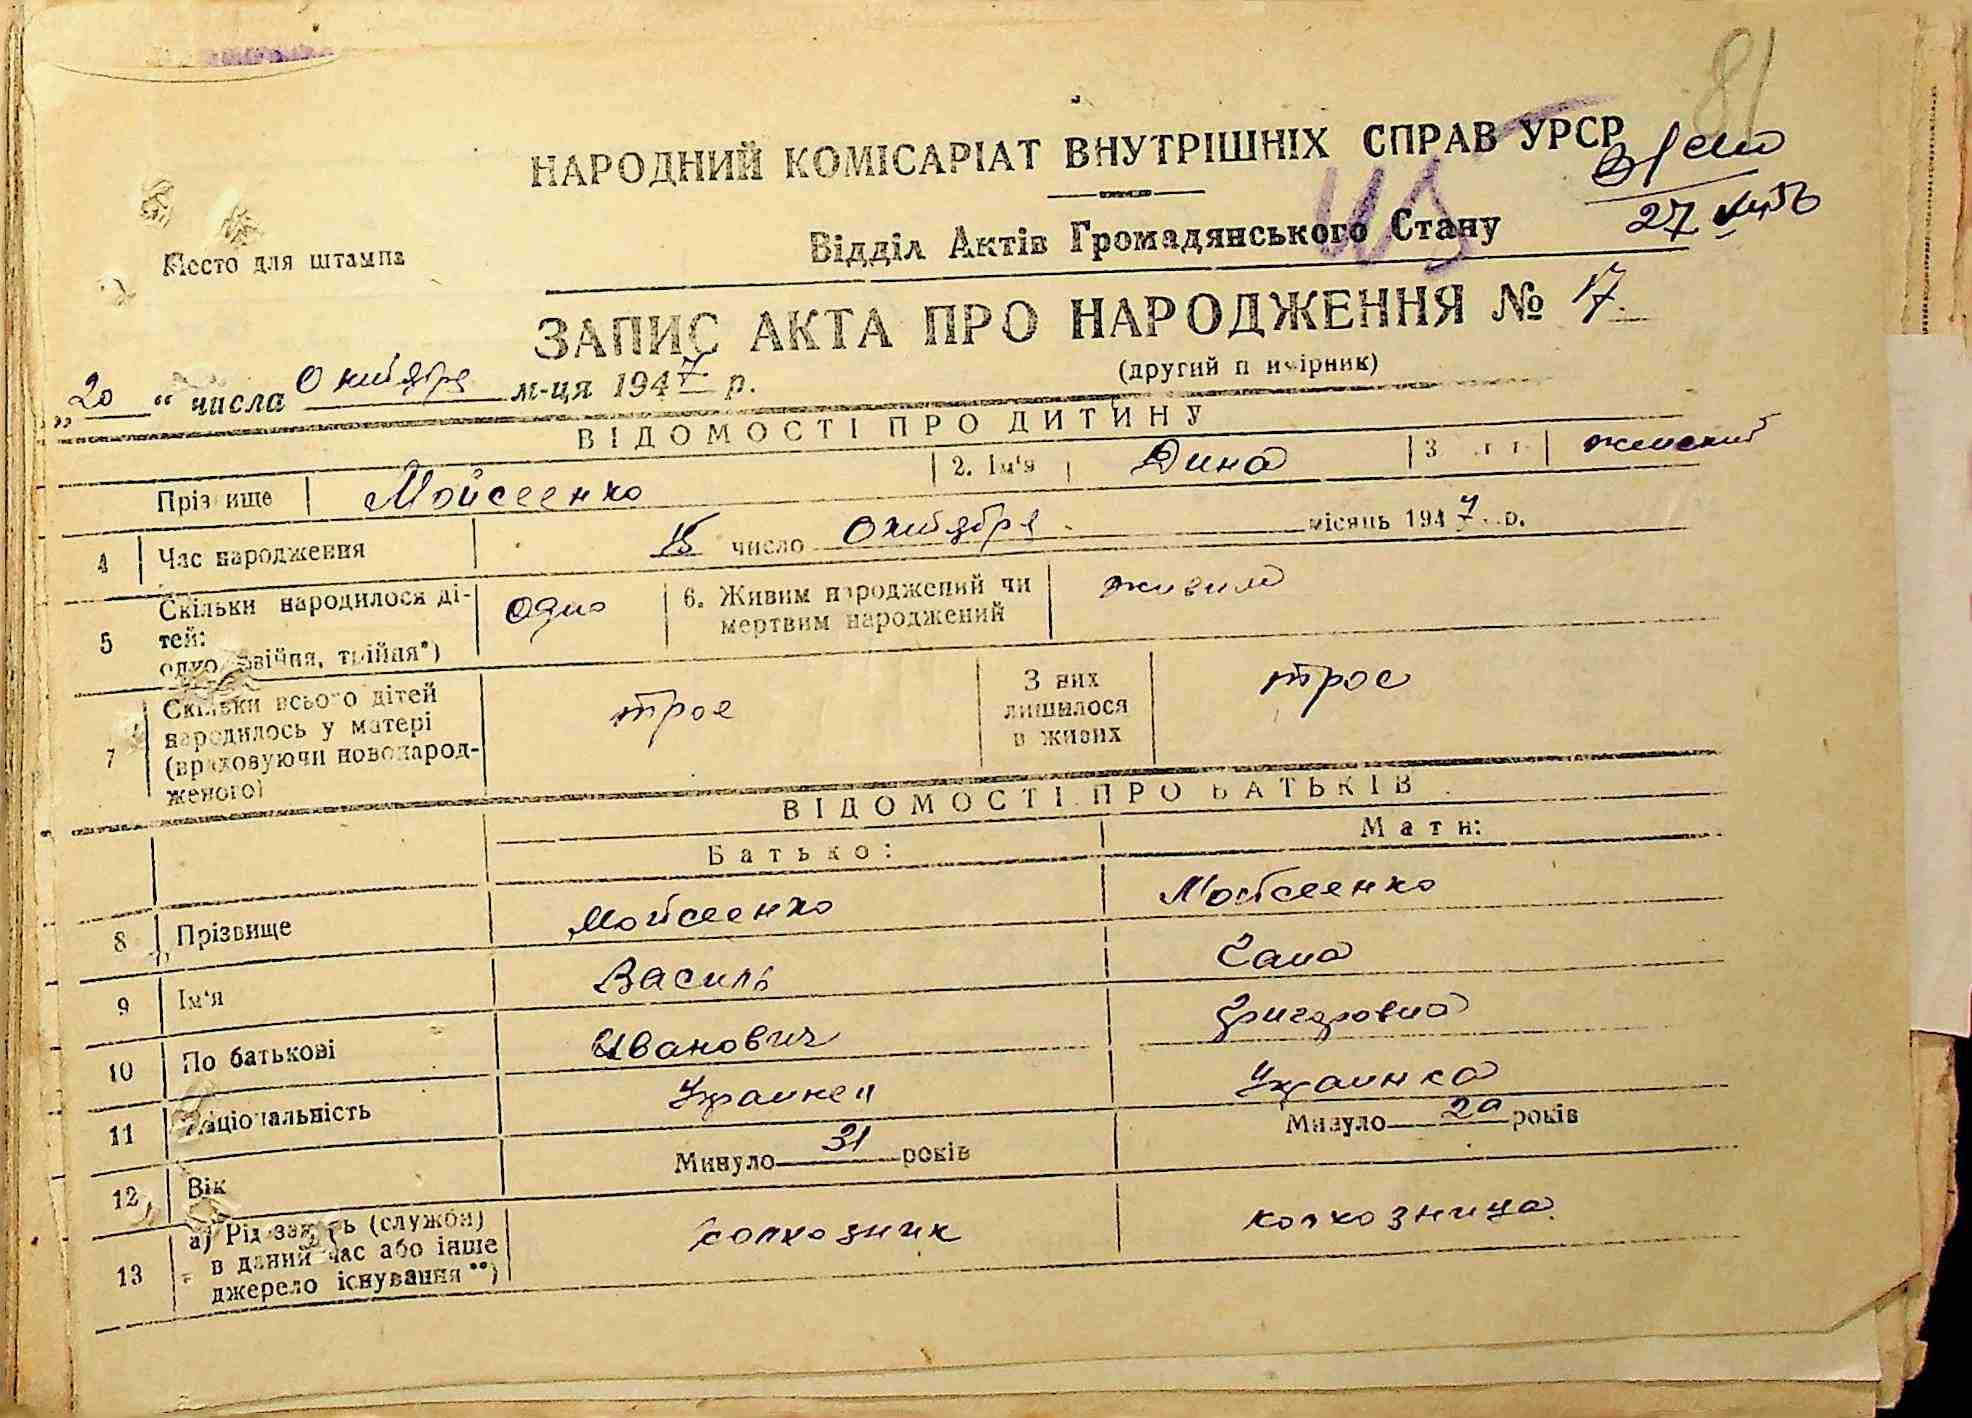 81
НАРОДНИЙ КОМІСАРІАТ ВНУТРІШНІХ СПРАВ УРСР
27
Место для штампа
Відділ Актів Громадянського Стану
ЗАПИС АКТА ПРО НАРОДЖЕННЯ № 17.
(другий п имірник)
„20“ числа Октября м-ця 1947 р.
ВІДОМОСТІ ПРО ДИТИНУ
Прізвище Мойсеенко 2. Ім'я Дина 3 женский
4 Час народження 15 число Октября місяць 1947 р.
5 Скільки народилося ді-
тей:
одно, двійня, трійня*) одно 6. Живим народжений чи
мертвим народжений живим
7 Скільки всього дітей
народилось у матері
(враховуючи новонарод-
женого) трое З них
лишилося
в живих трое
ВІДОМОСТІ ПРО БАТЬКІВ
Батько: Мати:
8 Прізвище Мойсеенко Мойсеенко
9 Ім'я Василь
10 По батькові Иванович Григоровна
11 Національність Украинец Украинка
12 Вік Минуло 31 років Минуло років
13 а) Рід занять (служби)
в даний час або інше
джерело існування**) колхозник колхозница